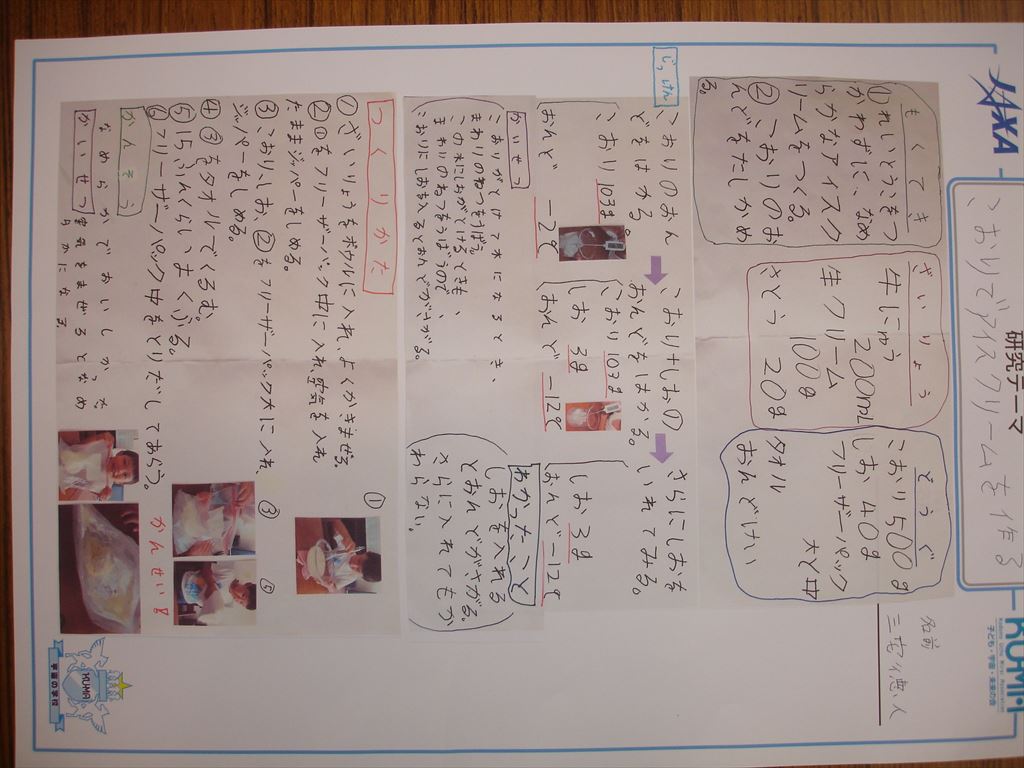 JAXA
研究テーマ
こおりでアイスクリームを作る
KU.MA
子ども・宇宙・未来の会
名前
三宅
もくてき
①れいとうこをつ
かわずに、なめ
らかなアイスク
リームをつくる。
②こおりのお
んどをたしかめ
る。
ざいりょう
牛にゅう
200mL
生クリーム
100g
さとう 20g
どうぐ
こおり500g
しお 40g
フリーザーパック
大と中
タオル
おんどけい
じっけん
こおりのおん
どをはかる
こおり103g
おんど −2℃
こおりけしおの
おんどをはかる。
こおり107g
しお 3g
おんど −12℃
さらにしおを
いれてみる。
しお3g
おんど−12℃
かいせつ
こおりがとけて水になるとき、
まわりのねつをうばう。
この水にしおがとけるときも、
まわりのねつをうばうので
こおりにしおを入れるとおんどがさがる。
わかったこと
しおを入れる
とおんどがさがる。
さらに入れてもか
わらない。
つくりかた
①ざいりょうをボウルに入れ、よくかきまぜる。
②①をフリーザーパック中に入れ空気を入れ
たままジッパーをしめる。
③こおり、しお、②をフリーザーパック大に入れ
ジッパーをしめる。
④③をタオルでくるむ。
⑤15ふんくらいよくふる。
⑥フリーザーパック中をとりだしてあらう。
①
③
⑤
かんせい
かんそう
なめらかでおいしかった
かいせつ
空気をまぜるとなめ
らかになる
KU-MA
宇宙の学校